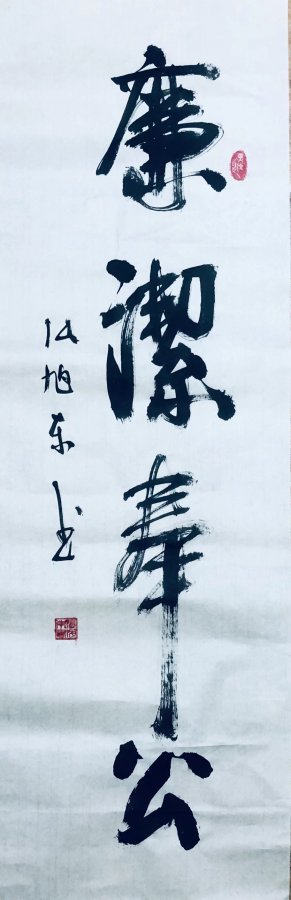 廉潔奉公
旭东书